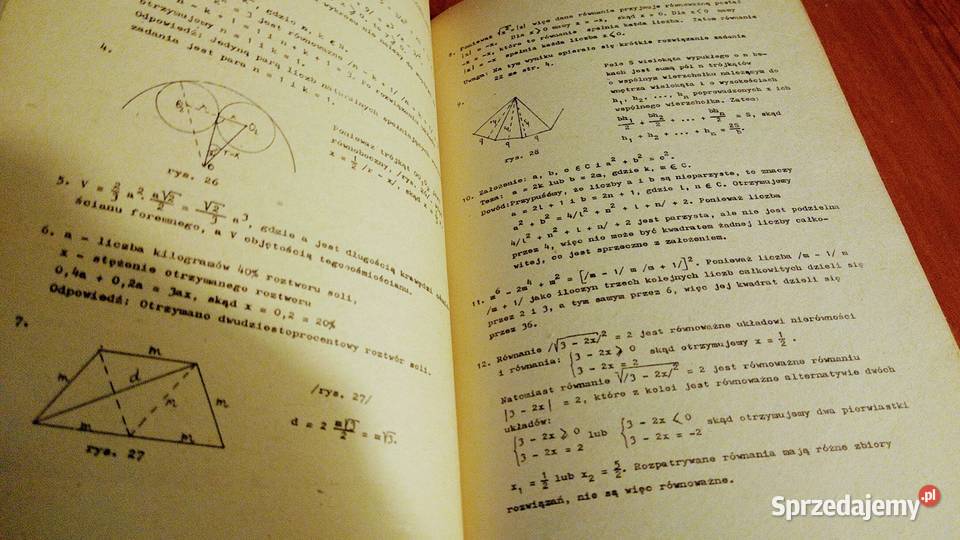 gdzie k, n ∈ N.
jest równoważne /n - k + 1/ /n +
n - k = 1 i n + k = 3, co
otrzymujemy n = 1 i k = 1.
Odpowiedź: Jedyną parą liczb naturalnych spełnia
zadania jest para n = 1 i k = 1.
4.
rys. 26
ponieważ trójkąt
równoboczny, /rys.
5. V = 2/3 a² · a√2/2 = √2/3 a³, gdzie a jest długością krawędzi
ścianu foremnego, a V objętością tegoośmiościanu.
6. a - liczba kilogramów 40% roztworu soli,
x - stężenie otrzymanego roztworu
0,4a + 0,2a = 3ax, skąd x = 0,2 = 20%
Odpowiedź: Otrzymano dwudziestoprocentowy roztwór soli.
7.
m
m
d
m
m
m
m
/rys. 27/
d = 2 m√3/2 = m√3.
rys. 27
8. Ponieważ √x² = |x| więc dana równania przyjmuje równoważną postać
|x| = -x. Dla x > 0 mamy x = -x, skąd x = 0. Dla x ≤ 0 mamy
-x = -x, które to równanie spełnia każda liczba. Zatem równanie
|x| = -x spełnia każda liczba x ≤ 0.
Uwaga: Na tym wyniku opierało się krótkie rozwiązanie zadania
22 ze str. 4.
9.
rys. 28
Pole S wielokąta wypukłego o n bo-
kach jest sumą pól n trójkątów
o wspólnym wierzchołku należącym do
wnętrza wielokąta i o wysokościach
h₁, h₂, ..., hₙ poprowadzonych z ich
wspólnego wierzchołka. Zatem:
bh₁/2 + bh₂/2 + ... + bhₙ/2 = S, skąd
h₁ + h₂ + ... + hₙ = 2S/b.
10. Założenie: a, b, c ∈ C i a² + b² = c².
Teza: a = 2k lub b = 2m, gdzie k, m ∈ C.
Dowód: Przypuśćmy, że liczby a i b są nieparzyste, to znaczy
a = 2l + 1 i b = 2n + 1, gdzie l, n ∈ C. Otrzymujemy
a² + b² = 4/l² + n² + l + n/ + 2. Ponieważ liczba
4/l² + n² + l + n/ + 2 jest parzysta, ale nie jest podzielna
przez 4, więc nie może być kwadratem żadnej liczby całko-
witej, co jest sprzeczne z założeniem.
11. m⁶ - 2m⁴ + m² = [/m - 1/ m /m + 1/]². Ponieważ liczba /m - 1/ m
/m + 1/ jako iloczyn trzech kolejnych liczb całkowitych dzieli się
przez 2 i 3, a tym samym przez 6, więc jej kwadrat dzieli się
przez 36.
12. Równanie /√3 - 2x/² = 2 jest równoważne układowi nierówności
i równania: {3 - 2x ≥ 0
3 - 2x = 2 skąd otrzymujemy x = 1/2 .
Natomiast równanie √/3 - 2x/² = 2 jest równoważne równaniu
|3 - 2x| = 2, które z kolei jest równoważne alternatywie dwóch
układów:
{3 - 2x ≥ 0 lub {3 - 2x < 0 skąd otrzymujemy dwa pierwiastki
3 - 2x = 2 3 - 2x = -2
x₁ = 1/2 lub x₂ = 5/2. Rozpatrywane równania mają różne zbiory
rozwiązań, nie są więc równoważne.
Sprzedajemy.pl